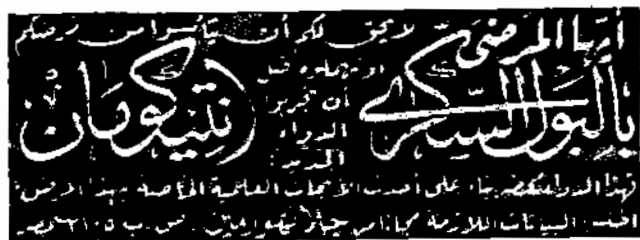 أيها المرضى
بالبول السكري
لا يحق لكم أن تيأسوا من مرضكم
أو تهملوه قبل
أن تجربوا
الدواء
الجديد:
(انتيكومان)
فهذا الدواء محضر بناء على أحدث الأبحاث العلمية الخاصة بهذا المرض.
البيانات اللازمة مجانا من ص. ب ٢١٠٥ مصر